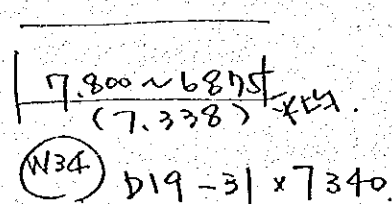 7.800~6875
(7.338)
N34 D19-31×7340